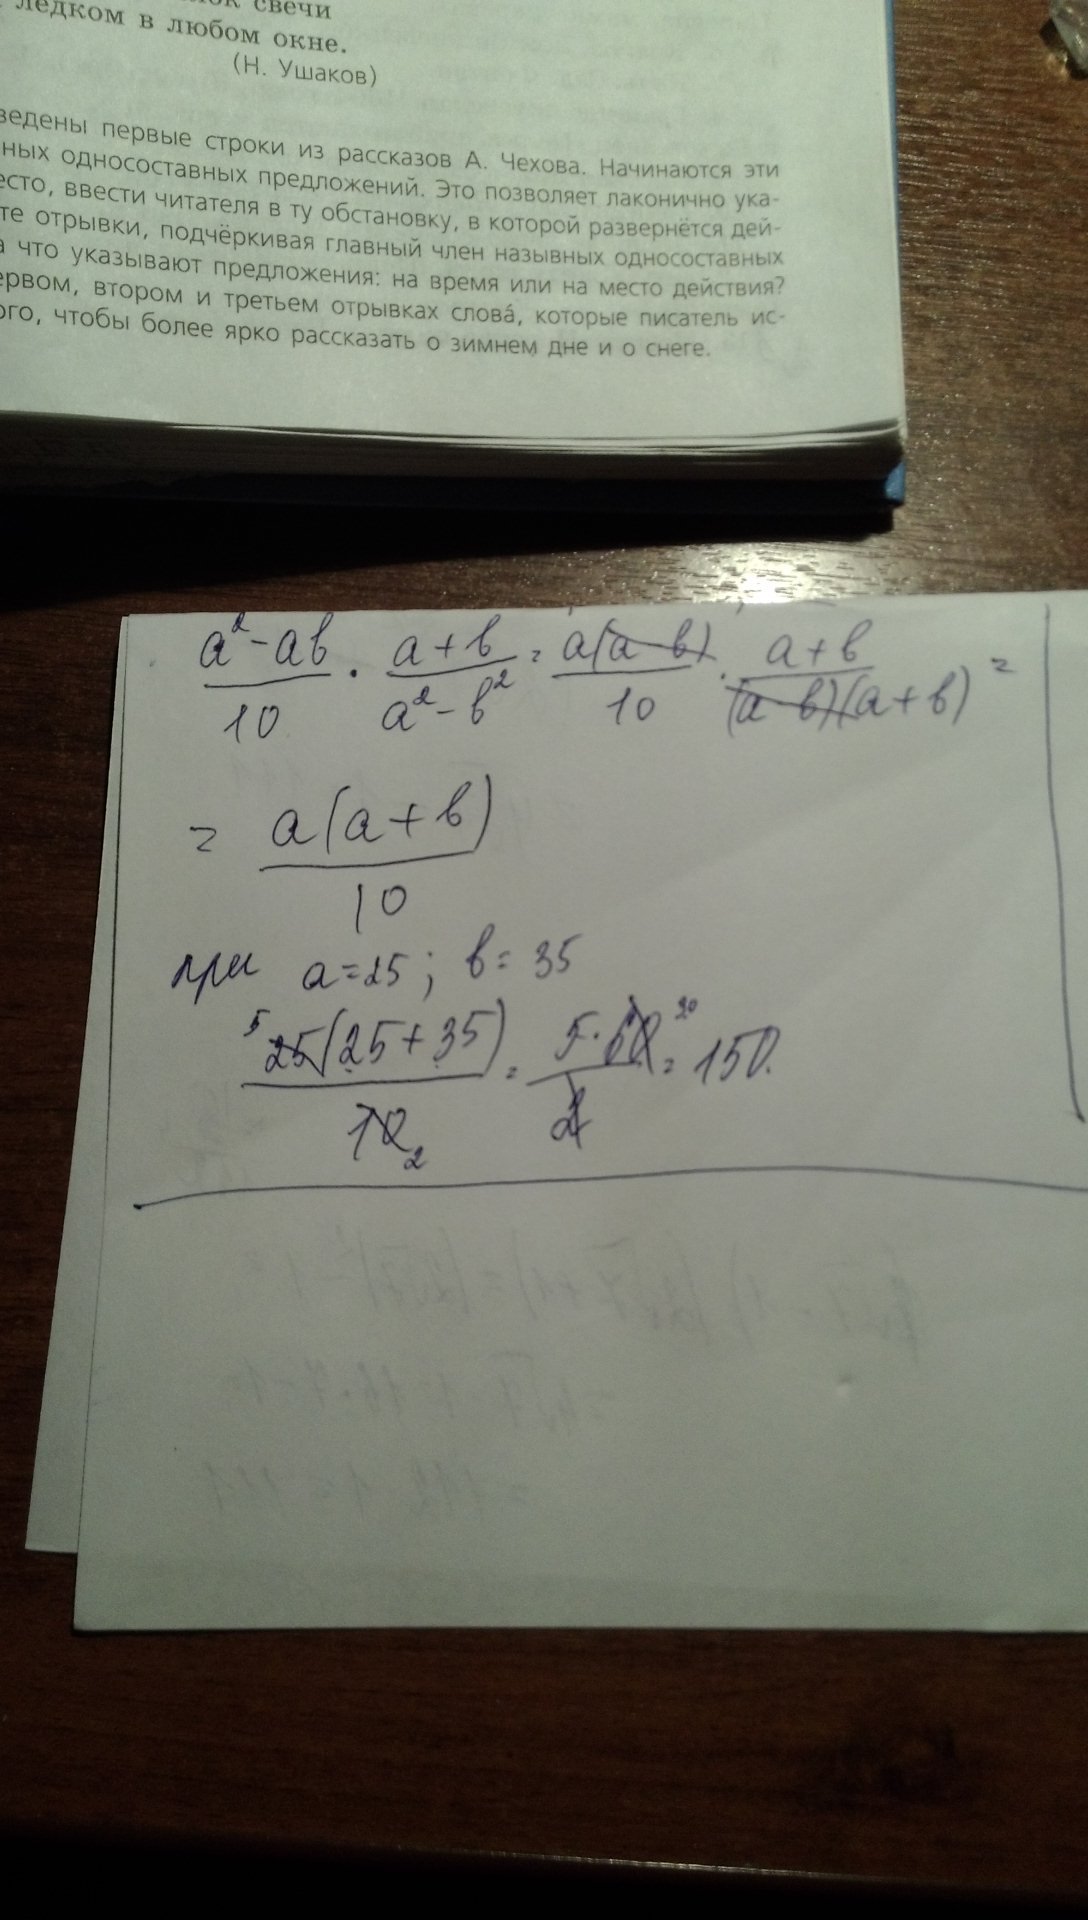 свечи
ледком в любом окне.
(Н. Ушаков)
ведены первые строки из рассказов А. Чехова. Начинаются эти
ных односоставных предложений. Это позволяет лаконично ука-
есто, ввести читателя в ту обстановку, в которой развернётся дей-
те отрывки, подчёркивая главный член назывных односоставных
а что указывают предложения: на время или на место действия?
ервом, втором и третьем отрывках слова́, которые писатель ис-
ого, чтобы более ярко рассказать о зимнем дне и о снеге.
(a²-ab)/10 · (a+b)/(a²-b²) = a(a-b)/10 · (a+b)/((a-b)(a+b)) =
= a(a+b)/10
при a=25; b=35
25(25+35)/10 = 5·60/2 = 150.